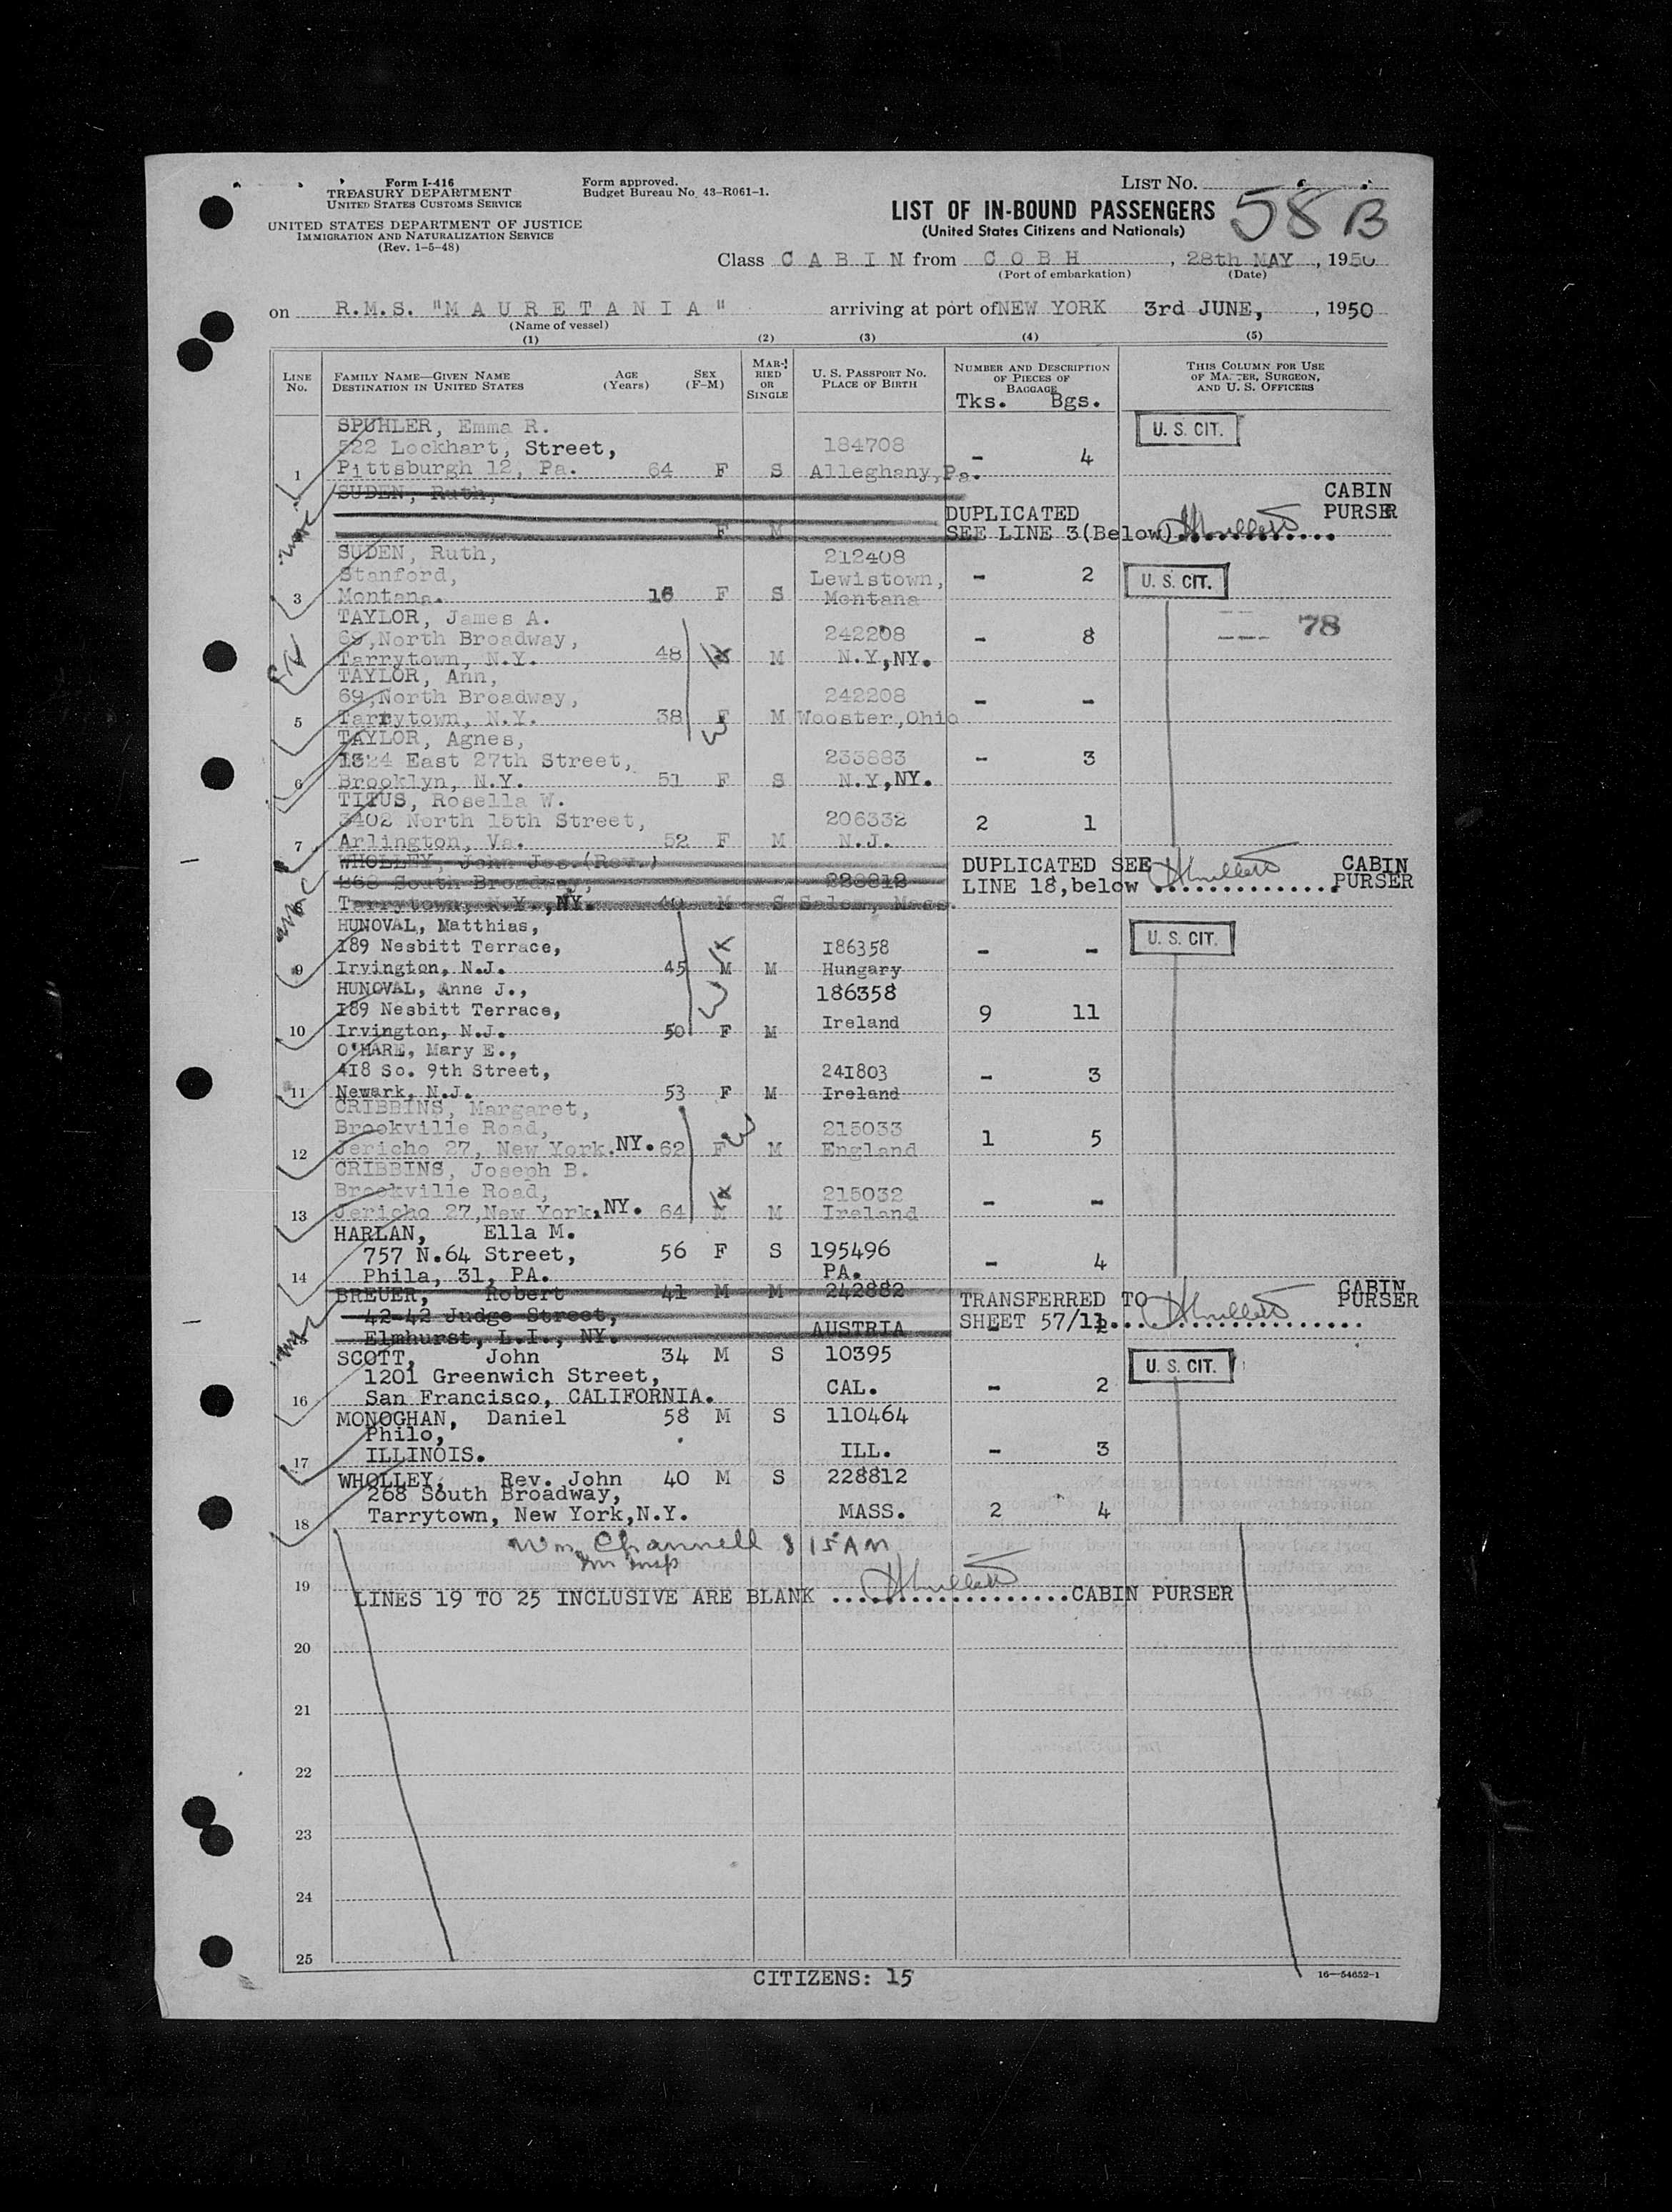 Form I-416
TREASURY DEPARTMENT
UNITED STATES CUSTOMS SERVICE
UNITED STATES DEPARTMENT OF JUSTICE
IMMIGRATION AND NATURALIZATION SERVICE
(Rev. 1-5-48)
Form approved.
Budget Bureau No. 43-R061-1.
LIST NO.
58 B
LIST OF IN-BOUND PASSENGERS
(United States Citizens and Nationals)
Class CABIN from COBH, 28th MAY, 1950
(Port of embarkation) (Date)
on R.M.S. "MAURETANIA" arriving at port of NEW YORK 3rd JUNE, , 1950
(Name of vessel)
(1) (2) (3) (4) (5)
LINE NO. FAMILY NAME—GIVEN NAME DESTINATION IN UNITED STATES AGE (Years) SEX (F-M) MARRIED OR SINGLE U. S. PASSPORT NO. PLACE OF BIRTH NUMBER AND DESCRIPTION OF PIECES OF BAGGAGE THIS COLUMN FOR USE OF MASTER, SURGEON, AND U. S. OFFICERS
Tks. Bgs.
SPUHLER, Emma R. U. S. CIT.
522 Lockhart, Street, 184708 - 4
1 Pittsburgh 12, Pa. 64 F S Alleghany, Pa.
SUDEN, Ruth, CABIN
DUPLICATED PURSER
F M SEE LINE 3(Below)
SUDEN, Ruth, 212408
Stanford, Lewistown, - 2 U. S. CIT.
3 Montana. 16 F S Montana
TAYLOR, James A.
69, North Broadway, 242208 - 8 78
Tarrytown, N.Y. 48 M N.Y, NY.
TAYLOR, Ann,
69, North Broadway, 242208 - -
5 Tarrytown, N.Y. 38 F M Wooster, Ohio
TAYLOR, Agnes,
1324 East 27th Street, 233883 - 3
6 Brooklyn, N.Y. 51 F S N.Y, NY.
TITUS, Rosella W.
3402 North 15th Street, 206332 2 1
7 Arlington, Va. 52 F M N.J.
WHOLLEY, John Jos. (Rev.) DUPLICATED SEE CABIN
268 South Broadway, 228812 LINE 18, below PURSER
Tarrytown, N.Y., NY. 40 M S Salem, Mass.
HUNOVAL, Matthias, U. S. CIT.
189 Nesbitt Terrace, 186358 - -
9 Irvington, N.J. 45 M M Hungary
HUNOVAL, Anne J., 186358
189 Nesbitt Terrace, 9 11
10 Irvington, N.J. 50 F M Ireland
O'HARE, Mary E.,
418 So. 9th Street, 241803 - 3
11 Newark, N.J. 53 F M Ireland
CRIBBINS, Margaret,
Brookville Road, 215033 1 5
12 Jericho 27, New York. NY. 62 F M England
CRIBBINS, Joseph B.
Brookville Road, 215032 - -
13 Jericho 27, New York, NY. 64 M M Ireland
HARLAN, Ella M.
757 N.64 Street, 56 F S 195496
14 Phila, 31, PA. PA. - 4
BREUER, Robert 41 M M 242882 TRANSFERRED TO CABIN
42-42 Judge Street, SHEET 57/11 PURSER
15 Elmhurst, L.I., NY. AUSTRIA - 2
SCOTT, John 34 M S 10395 U. S. CIT.
1201 Greenwich Street,
16 San Francisco, CALIFORNIA. CAL. - 2
MONOGHAN, Daniel 58 M S 110464
Philo,
17 ILLINOIS. ILL. - 3
WHOLLEY, Rev. John 40 M S 228812
268 South Broadway,
18 Tarrytown, New York, N.Y. MASS. 2 4
Wm Channell 8 15 AM
Im Insp
19
LINES 19 TO 25 INCLUSIVE ARE BLANK ....................CABIN PURSER
20
21
22
23
24
25
CITIZENS: 15
16—54652-1